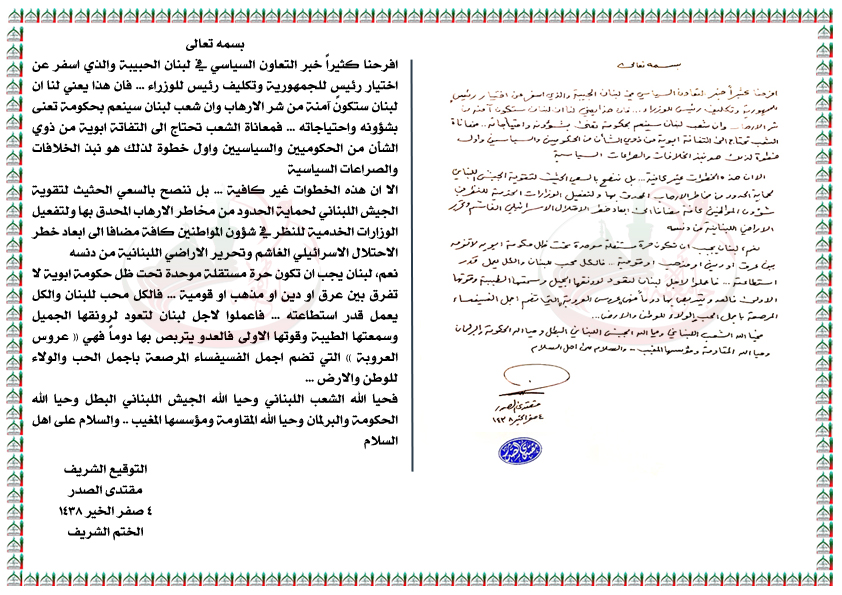 بسمه تعالى
افرحنا كثيراً خبر التعاون السياسي في لبنان الحبيبة والذي اسفر عن
اختيار رئيس للجمهورية وتكليف رئيس للوزراء ... فان هذا يعني لنا ان
لبنان ستكون آمنة من شر الارهاب وان شعب لبنان سينعم بحكومة تعنى
بشؤونه واحتياجاته ... فمعاناة الشعب تحتاج الى التفاتة ابوية من ذوي
الشأن من الحكوميين والسياسيين واول خطوة لذلك هو نبذ الخلافات
والصراعات السياسية
الا ان هذه الخطوات غير كافية ... بل ننصح بالسعي الحثيث لتقوية
الجيش اللبناني لحماية الحدود من مخاطر الارهاب المحدق بها ولتفعيل
الوزارات الخدمية للنظر في شؤون المواطنين كافة مضافا الى ابعاد خطر
الاحتلال الاسرائيلي الغاشم وتحرير الاراضي اللبنانية من دنسه
نعم، لبنان يجب ان تكون حرة مستقلة موحدة تحت ظل حكومة ابوية لا
تفرق بين عرق او دين او مذهب او قومية ... فالكل محب للبنان والكل
يعمل قدر استطاعته ... فاعملوا لاجل لبنان لتعود لرونقها الجميل
وسمعتها الطيبة وقوتها الاولى فالعدو يتربص بها دوماً فهي « عروس
العروبة » التي تضم اجمل الفسيفساء المرصعة باجمل الحب والولاء
للوطن والارض ...
فحيا الله الشعب اللبناني وحيا الله الجيش اللبناني البطل وحيا الله
الحكومة والبرلمان وحيا الله المقاومة ومؤسسها المغيب .. والسلام على اهل
السلام
التوقيع الشريف
مقتدى الصدر
٤ صفر الخير ١٤٣٨
الختم الشريف
بسمه تعالى
افرحنا كثيراً خبر التعاون السياسي في لبنان الحبيبة والذي اسفر عن اختيار رئيس
للجمهورية وتكليف رئيس للوزراء ... فان هذا يعني لنا ان لبنان ستكون آمنة من
شر الارهاب وان شعب لبنان سينعم بحكومة تعنى بشؤونه واحتياجاته .. فمعاناة
الشعب تحتاج الى التفاتة ابوية من ذوي الشأن من الحكوميين والسياسيين واول
خطوة لذلك هو نبذ الخلافات والصراعات السياسية
الا ان هذه الخطوات غير كافية ... بل ننصح بالسعي الحثيث لتقوية الجيش اللبناني
لحماية الحدود من مخاطر الارهاب المحدق بها ولتفعيل الوزارات الخدمية للنظر في
شؤون المواطنين كافة مضافا الى ابعاد خطر الاحتلال الاسرائيلي الغاشم وتحرير
الاراضي اللبنانية من دنسه
نعم، لبنان يجب ان تكون حرة مستقلة موحدة تحت ظل حكومة ابوية لا تفرق
بين عرق او دين او مذهب او قومية ... فالكل محب للبنان والكل يعمل قدر
استطاعته ... فاعملوا لاجل لبنان لتعود لرونقها الجميل وسمعتها الطيبة وقوتها
الاولى فالعدو يتربص بها دوماً فهي عروس العروبة التي تضم اجمل الفسيفساء
المرصعة باجمل الحب والولاء للوطن والارض ...
فحيا الله الشعب اللبناني وحيا الله الجيش اللبناني البطل وحيا الله الحكومة والبرلمان
وحيا الله المقاومة ومؤسسها المغيب .. والسلام على اهل السلام
مقتدى الصدر
٤ صفر الخير ١٤٣٨